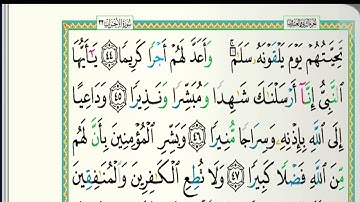 سُورَةُ الأَحْزَابِ ٣٣
تَحِيَّتُهُمْ يَوْمَ يَلْقَوْنَهُۥ سَلَٰمٌ ۚ وَأَعَدَّ لَهُمْ أَجْرًا كَرِيمًا ٤٤ يَٰٓأَيُّهَا
ٱلنَّبِىُّ إِنَّآ أَرْسَلْنَٰكَ شَٰهِدًا وَمُبَشِّرًا وَنَذِيرًا ٤٥ وَدَاعِيًا
إِلَى ٱللَّهِ بِإِذْنِهِۦ وَسِرَاجًا مُّنِيرًا ٤٦ وَبَشِّرِ ٱلْمُؤْمِنِينَ بِأَنَّ لَهُم
مِّنَ ٱللَّهِ فَضْلًا كَبِيرًا ٤٧ وَلَا تُطِعِ ٱلْكَٰفِرِينَ وَٱلْمُنَٰفِقِينَ